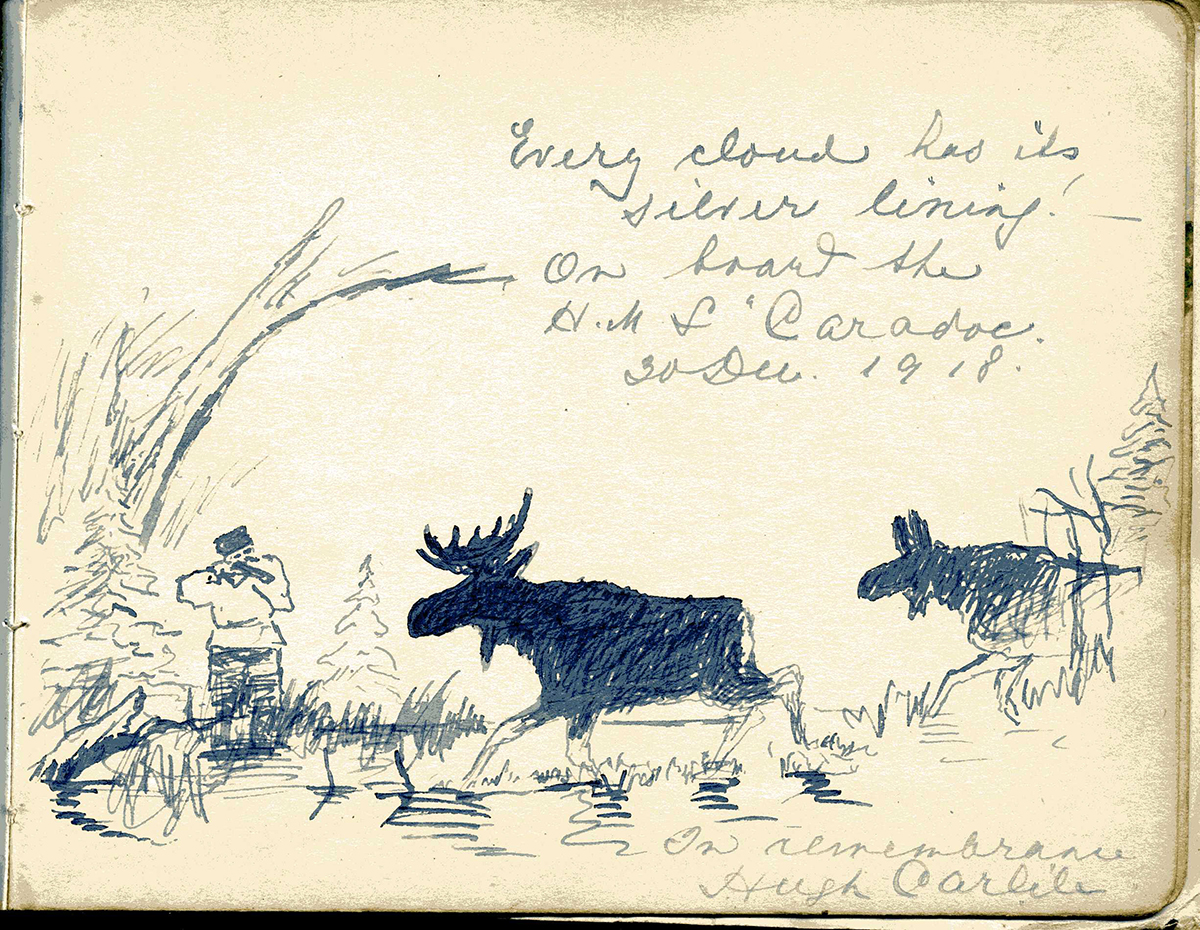 Every cloud has its
silver lining! —
On board the
H.M S "Caradoc.
30 Dec. 1918.
In remembrance
Hugh Carlile